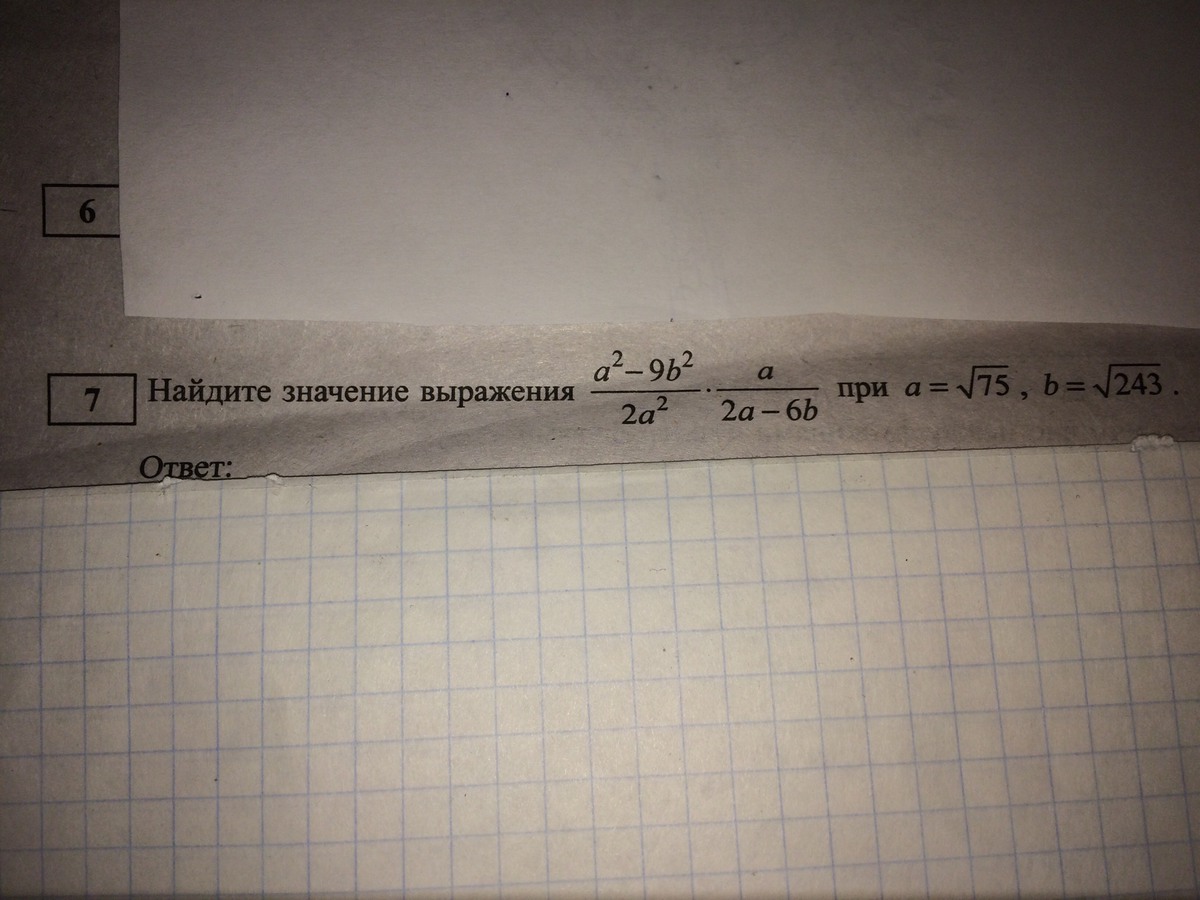 6
7 Найдите значение выражения \frac{a^2-9b^2}{2a^2} \cdot \frac{a}{2a-6b} при a = \sqrt{75}, b = \sqrt{243}.
Ответ: